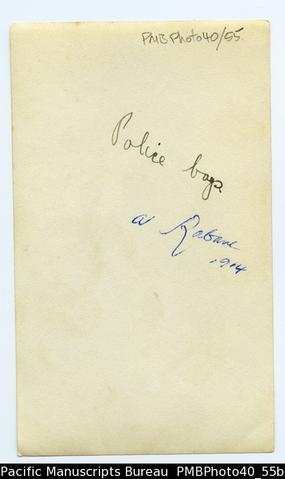 PMB Photo40/55
Police boys
at Rabaul
1914
Pacific Manuscripts Bureau PMBPhoto40_55b